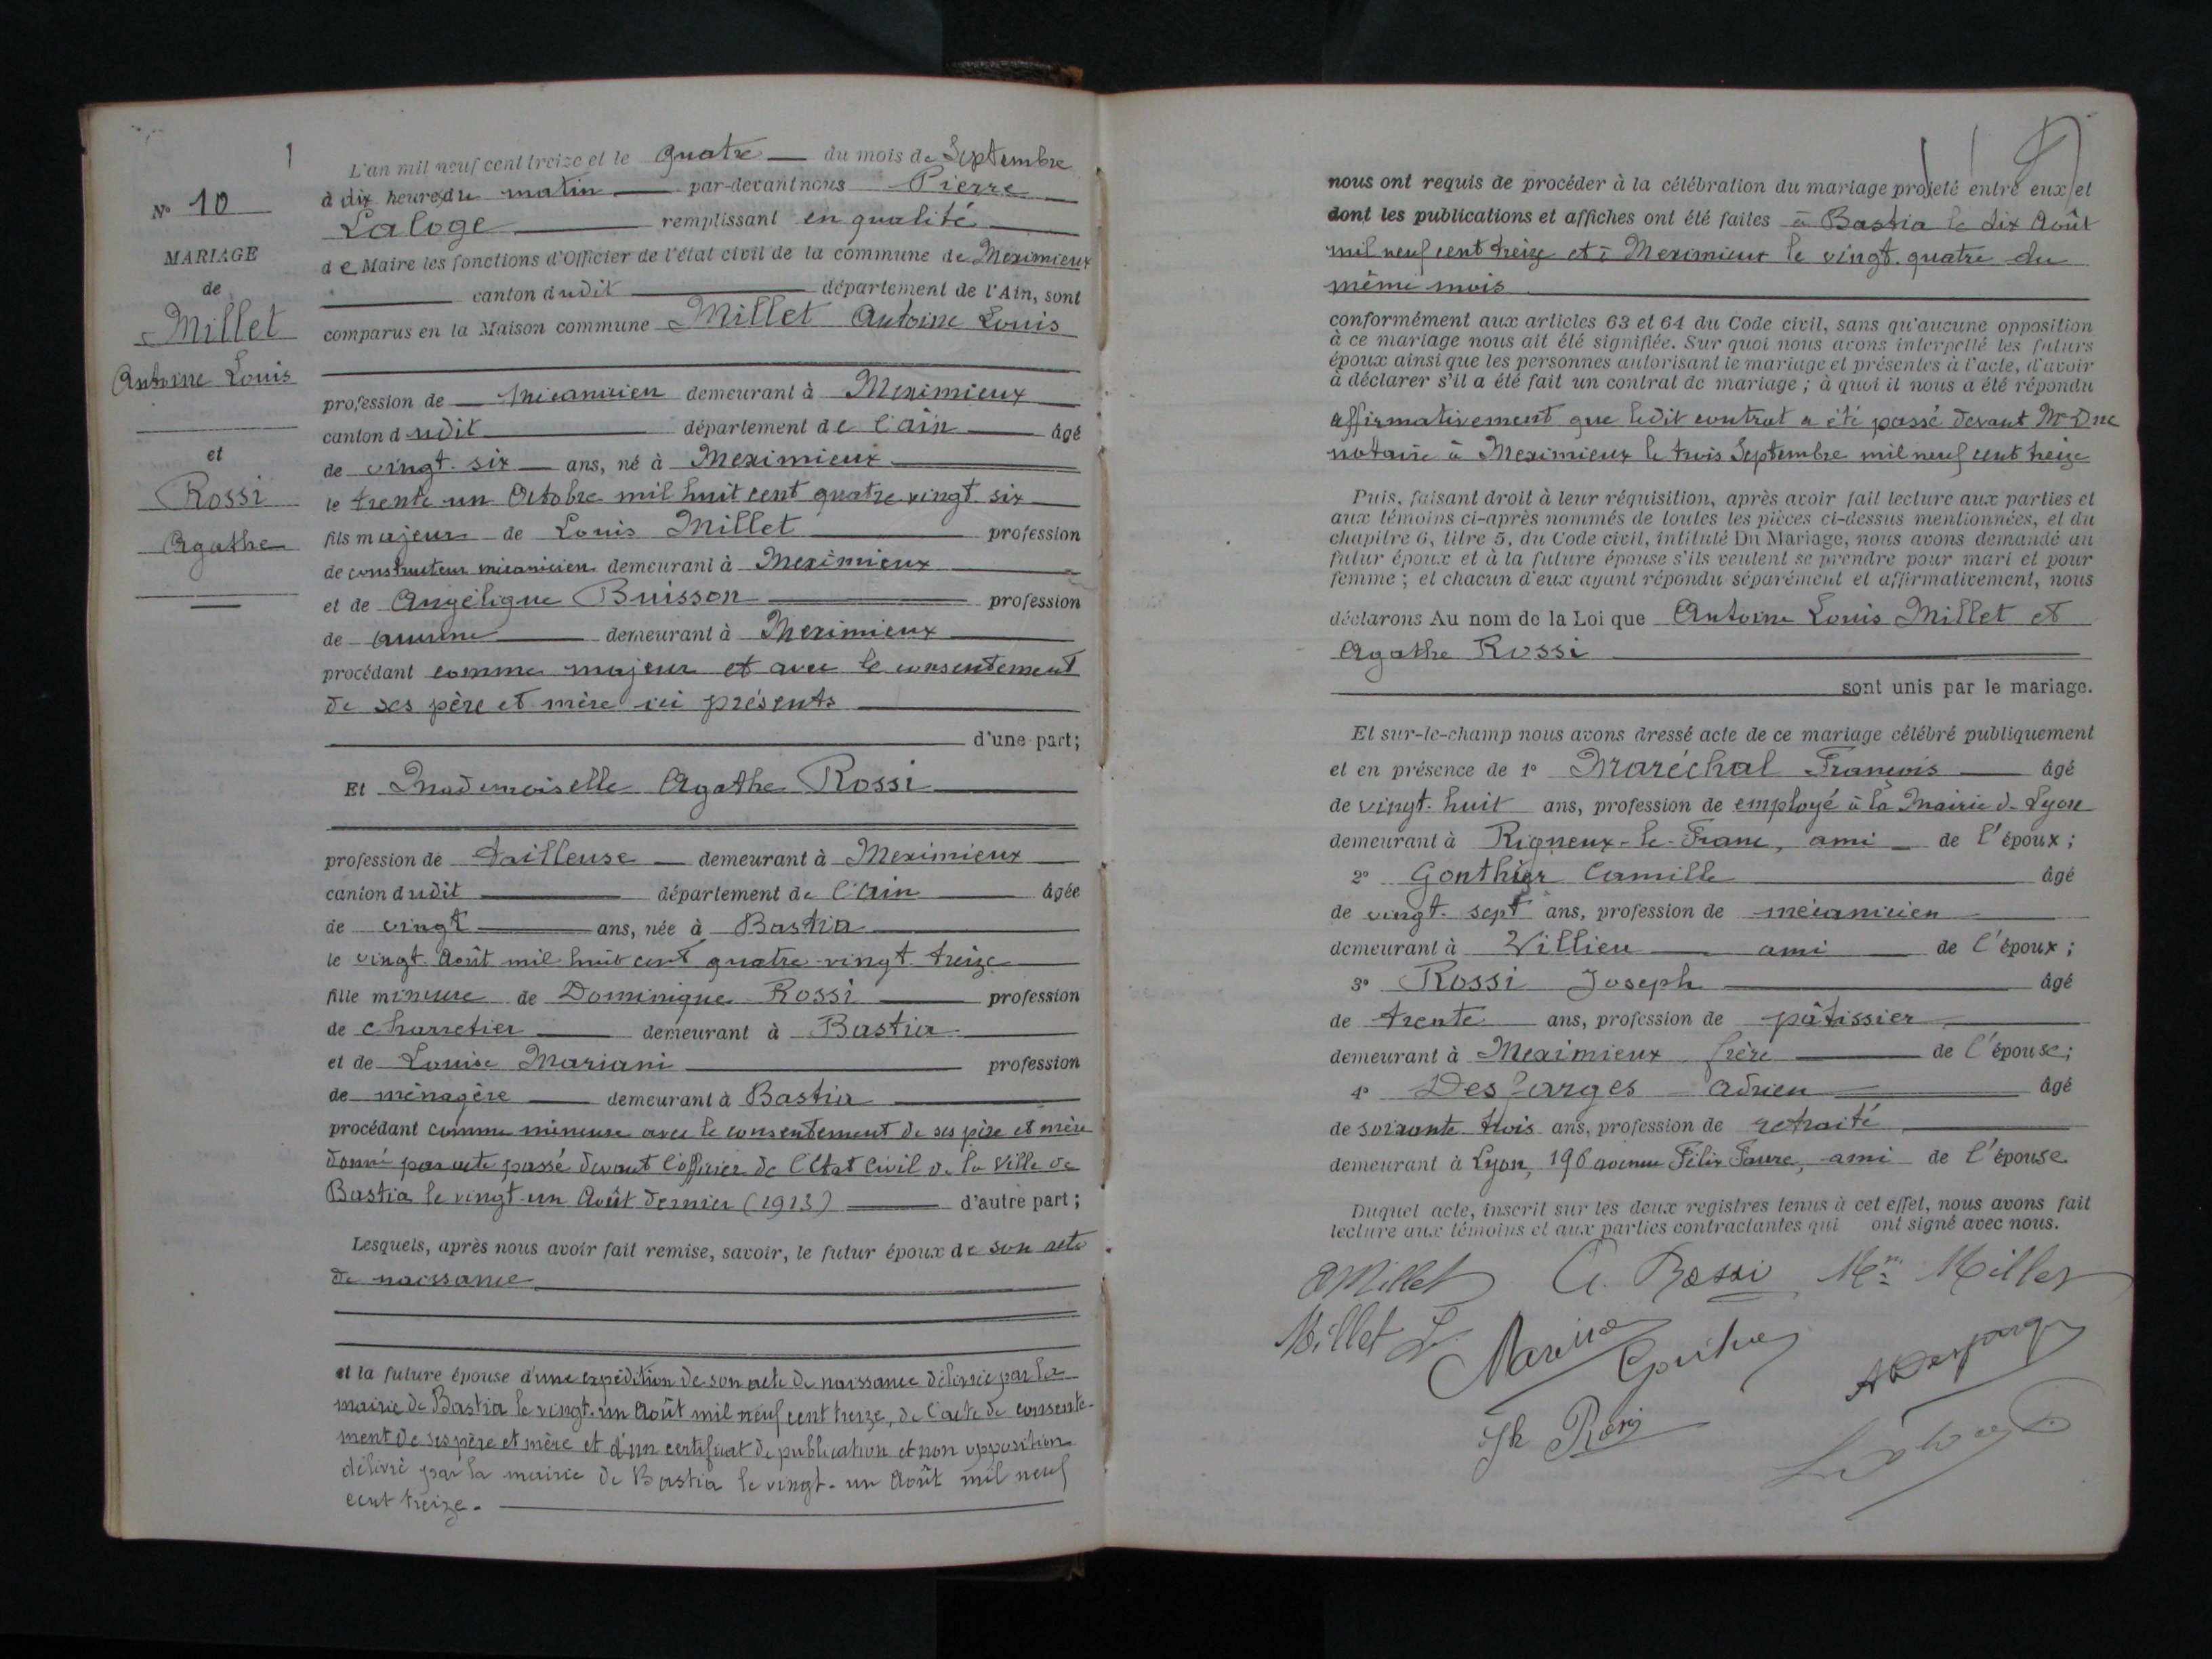 1
N° 10
MARIAGE
de
Millet
Antoine Louis
et
Rossi
Agathe
L'an mil neuf cent treize et le quatre du mois de Septembre
à dix heures du matin par-devant nous Pierre
Laloge remplissant en qualité
de Maire les fonctions d'Officier de l'état civil de la commune de Meximieux
canton dudit département de l'Ain, sont
comparus en la Maison commune Millet Antoine Louis
profession de mécanicien demeurant à Meximieux
canton dudit département de l'ain âgé
de vingt-six ans, né à Meximieux
le trente un Octobre mil huit cent quatre vingt six
fils majeur de Louis Millet profession
de constructeur mécanicien demeurant à Meximieux
et de Angélique Buisson profession
de aucune demeurant à Meximieux
procédant comme majeur et avec le consentement
de ses père et mère ici présents
d'une part;
Et Mademoiselle Agathe Rossi
profession de tailleuse demeurant à Meximieux
canton dudit département de l'ain âgée
de vingt ans, née à Bastia
le vingt Août mil huit cent quatre-vingt treize
fille mineure de Dominique Rossi profession
de charretier demeurant à Bastia
et de Louise Mariani profession
de ménagère demeurant à Bastia
procédant comme mineure avec le consentement de ses père et mère
donné par acte passé devant l'officier de l'Etat Civil de la Ville de
Bastia le vingt-un Août dernier (1913) d'autre part;
Lesquels, après nous avoir fait remise, savoir, le futur époux de son acte
de naissance
et la future épouse d'une expédition de son acte de naissance délivrée par la
mairie de Bastia le vingt-un Août mil neuf cent treize, de l'acte de consente-
ment de ses père et mère et d'un certificat de publication et non opposition
délivré par la mairie de Bastia le vingt-un Août mil neuf
cent treize.
nous ont requis de procéder à la célébration du mariage projeté entre eux et
dont les publications et affiches ont été faites à Bastia le dix Août
mil neuf cent treize et à Meximieux le vingt-quatre du
même mois
conformément aux articles 63 et 64 du Code civil, sans qu'aucune opposition
à ce mariage nous ait été signifiée. Sur quoi nous avons interpellé les futurs
époux ainsi que les personnes autorisant le mariage et présentes à l'acte, d'avoir
à déclarer s'il a été fait un contrat de mariage; à quoi il nous a été répondu
affirmativement que ledit contrat a été passé devant Me Duc
notaire à Meximieux le trois Septembre mil neuf cent treize
Puis, faisant droit à leur réquisition, après avoir fait lecture aux parties et
aux témoins ci-après nommés de toutes les pièces ci-dessus mentionnées, et du
chapitre 6, titre 5, du Code civil, intitulé Du Mariage, nous avons demandé au
futur époux et à la future épouse s'ils veulent se prendre pour mari et pour
femme; et chacun d'eux ayant répondu séparément et affirmativement, nous
déclarons Au nom de la Loi que Antoine Louis Millet et
Agathe Rossi
sont unis par le mariage.
Et sur-le-champ nous avons dressé acte de ce mariage célébré publiquement
et en présence de 1° Maréchal François âgé
de vingt-huit ans, profession de employé à la Mairie de Lyon
demeurant à Rigneux-le-Franc, ami de l'époux;
2° Gonthier Camille âgé
de vingt-sept ans, profession de mécanicien
demeurant à Villieu ami de l'époux;
3° Rossi Joseph âgé
de trente ans, profession de pâtissier
demeurant à Meximieux frère de l'épouse;
4° Desfarges Adrien âgé
de soixante trois ans, profession de retraité
demeurant à Lyon, 196 avenue Félix Faure, ami de l'épouse.
Duquel acte, inscrit sur les deux registres tenus à cet effet, nous avons fait
lecture aux témoins et aux parties contractantes qui ont signé avec nous.
A Millet A. Rossi Me Millet
Millet L